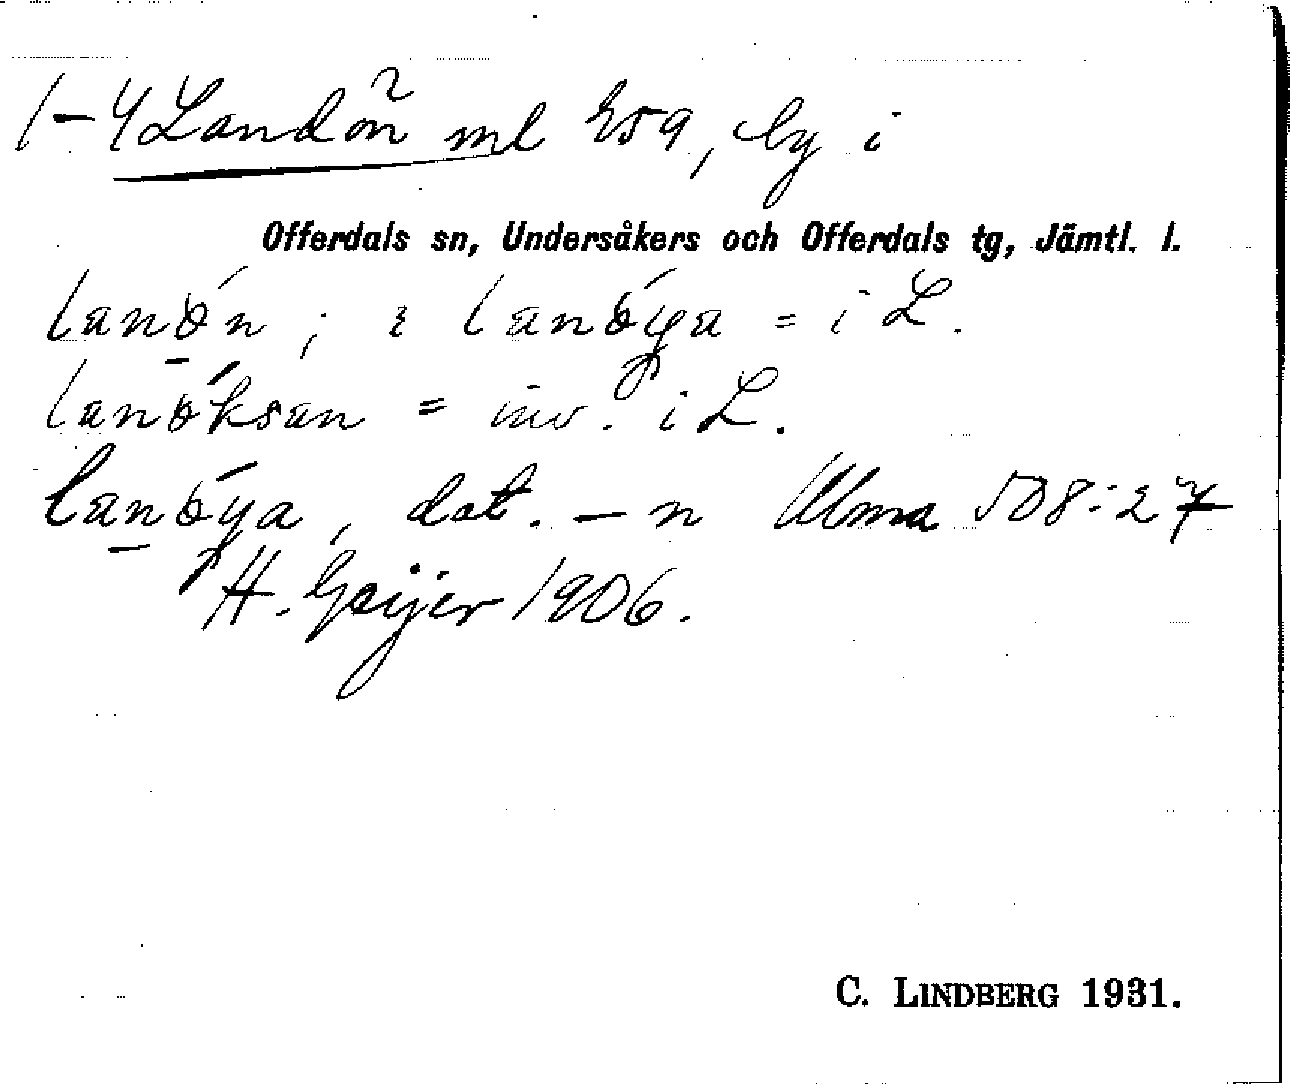 1-4 Landön ml 259, by i
Offerdals sn, Undersåkers och Offerdals tg, Jämtl. l.
lanön ; i lanöya = i L.
lanöksan = inv. i L.
lanöya, dat. – n Ulma 508:27
H. Geijer 1906.
C. LINDBERG 1931.